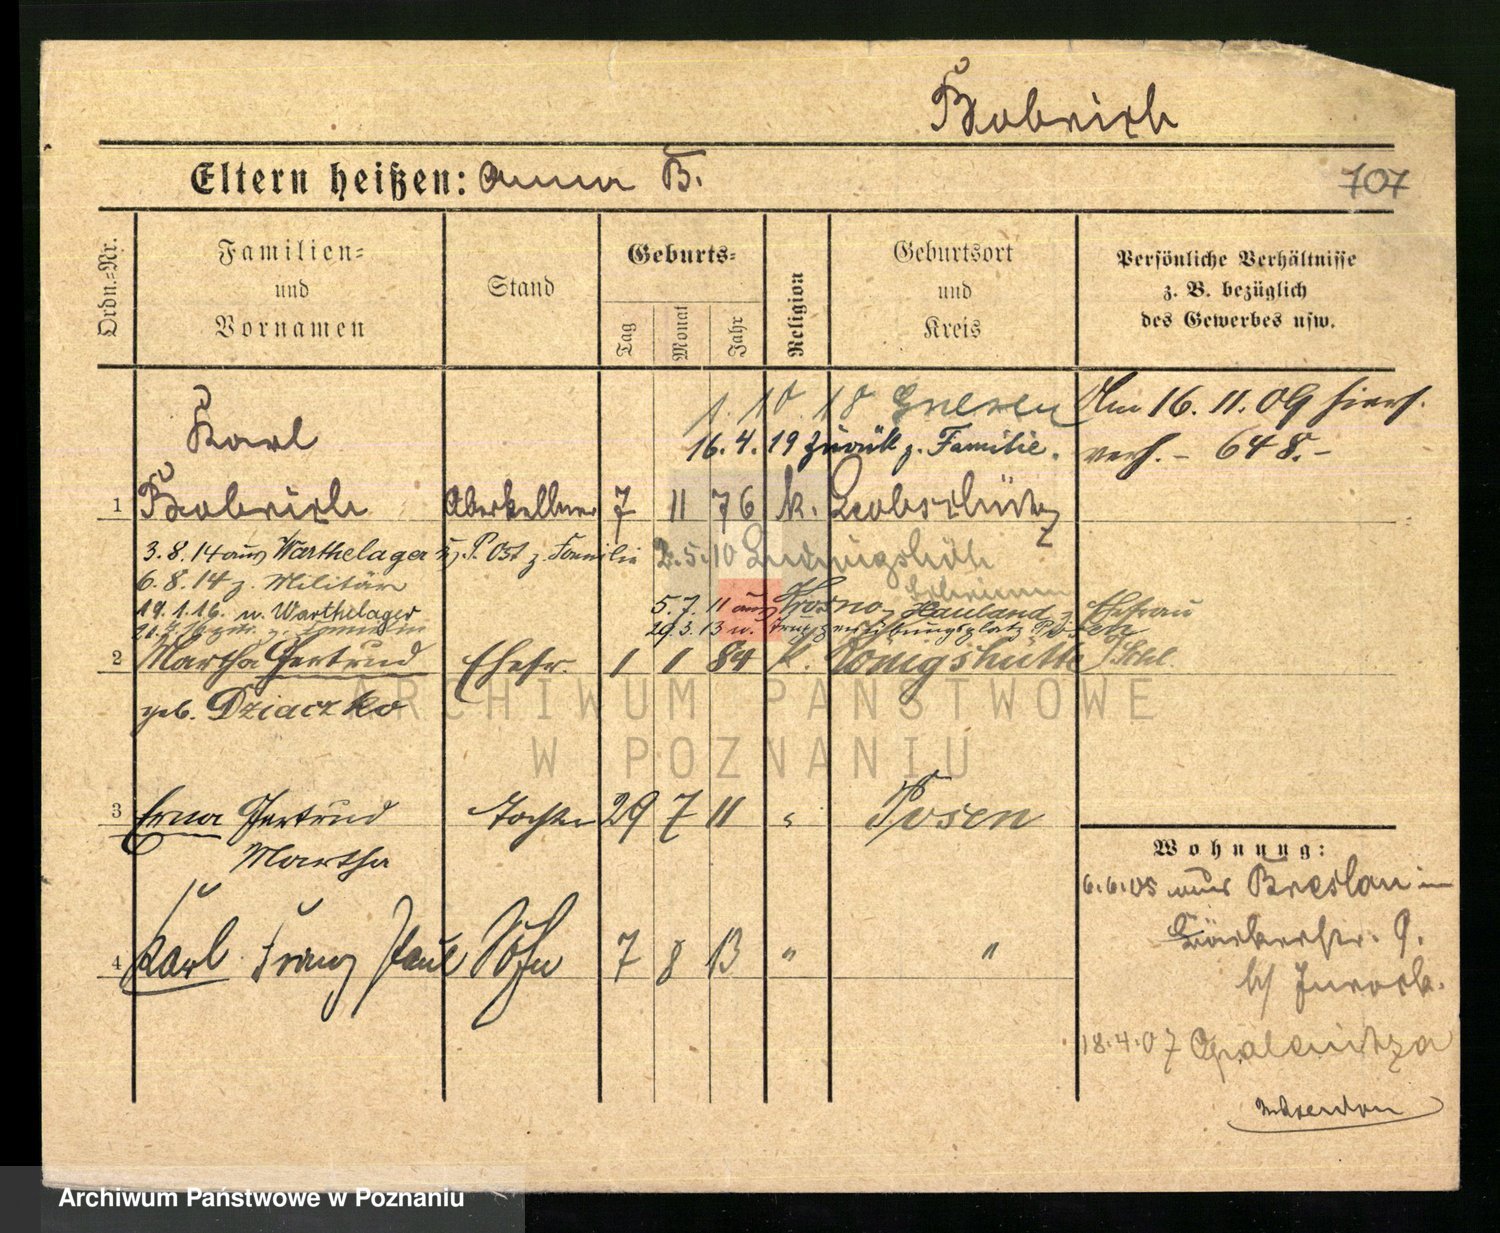 Bobrich
Eltern heißen: Anna B.
707
Ordn.-Nr.
Familien-
und
Vornamen
Stand
Geburts-
Tag
Monat
Jahr
Religion
Geburtsort
und
Kreis
Persönliche Verhältnisse
z. B. bezüglich
des Gewerbes usw.
1. 10. 18 Gnesen
Am 16. 11. 09 hierh.
Karl
16. 4. 19 zurük z. Familie.
verh. - 648. -
1 Bobrich Oberkellner 7 11 76 k. Leobschütz
3. 8. 14 aus Warthelager n. P. Ost z. Familie 2. 5. 10 Ludwigshöh
6. 8. 14 z. Militär
Schrimm
19. 1. 16. n. Warthelager
5. 7. 11 aus Krosno, Hauland z. Ehefrau
29. 3. 13 n. Truppenübungsplatz Posen
2 Martha Gertrud Ehefr. 1 1 84 k. Königshütte
geb. Dziaczko
3 Erna Gertrud Tochter 29 7 11 " Posen
Martha
4 Karl Franz Paul Sohn 7 8 13 " "
Wohnung:
6. 6. 05 aus Breslau in
Bäckerstr. 9.
b/
18. 4. 07 Opalenitza
ARCHIWUM PAŃSTWOWE
W POZNANIU
Archiwum Państwowe w Poznaniu